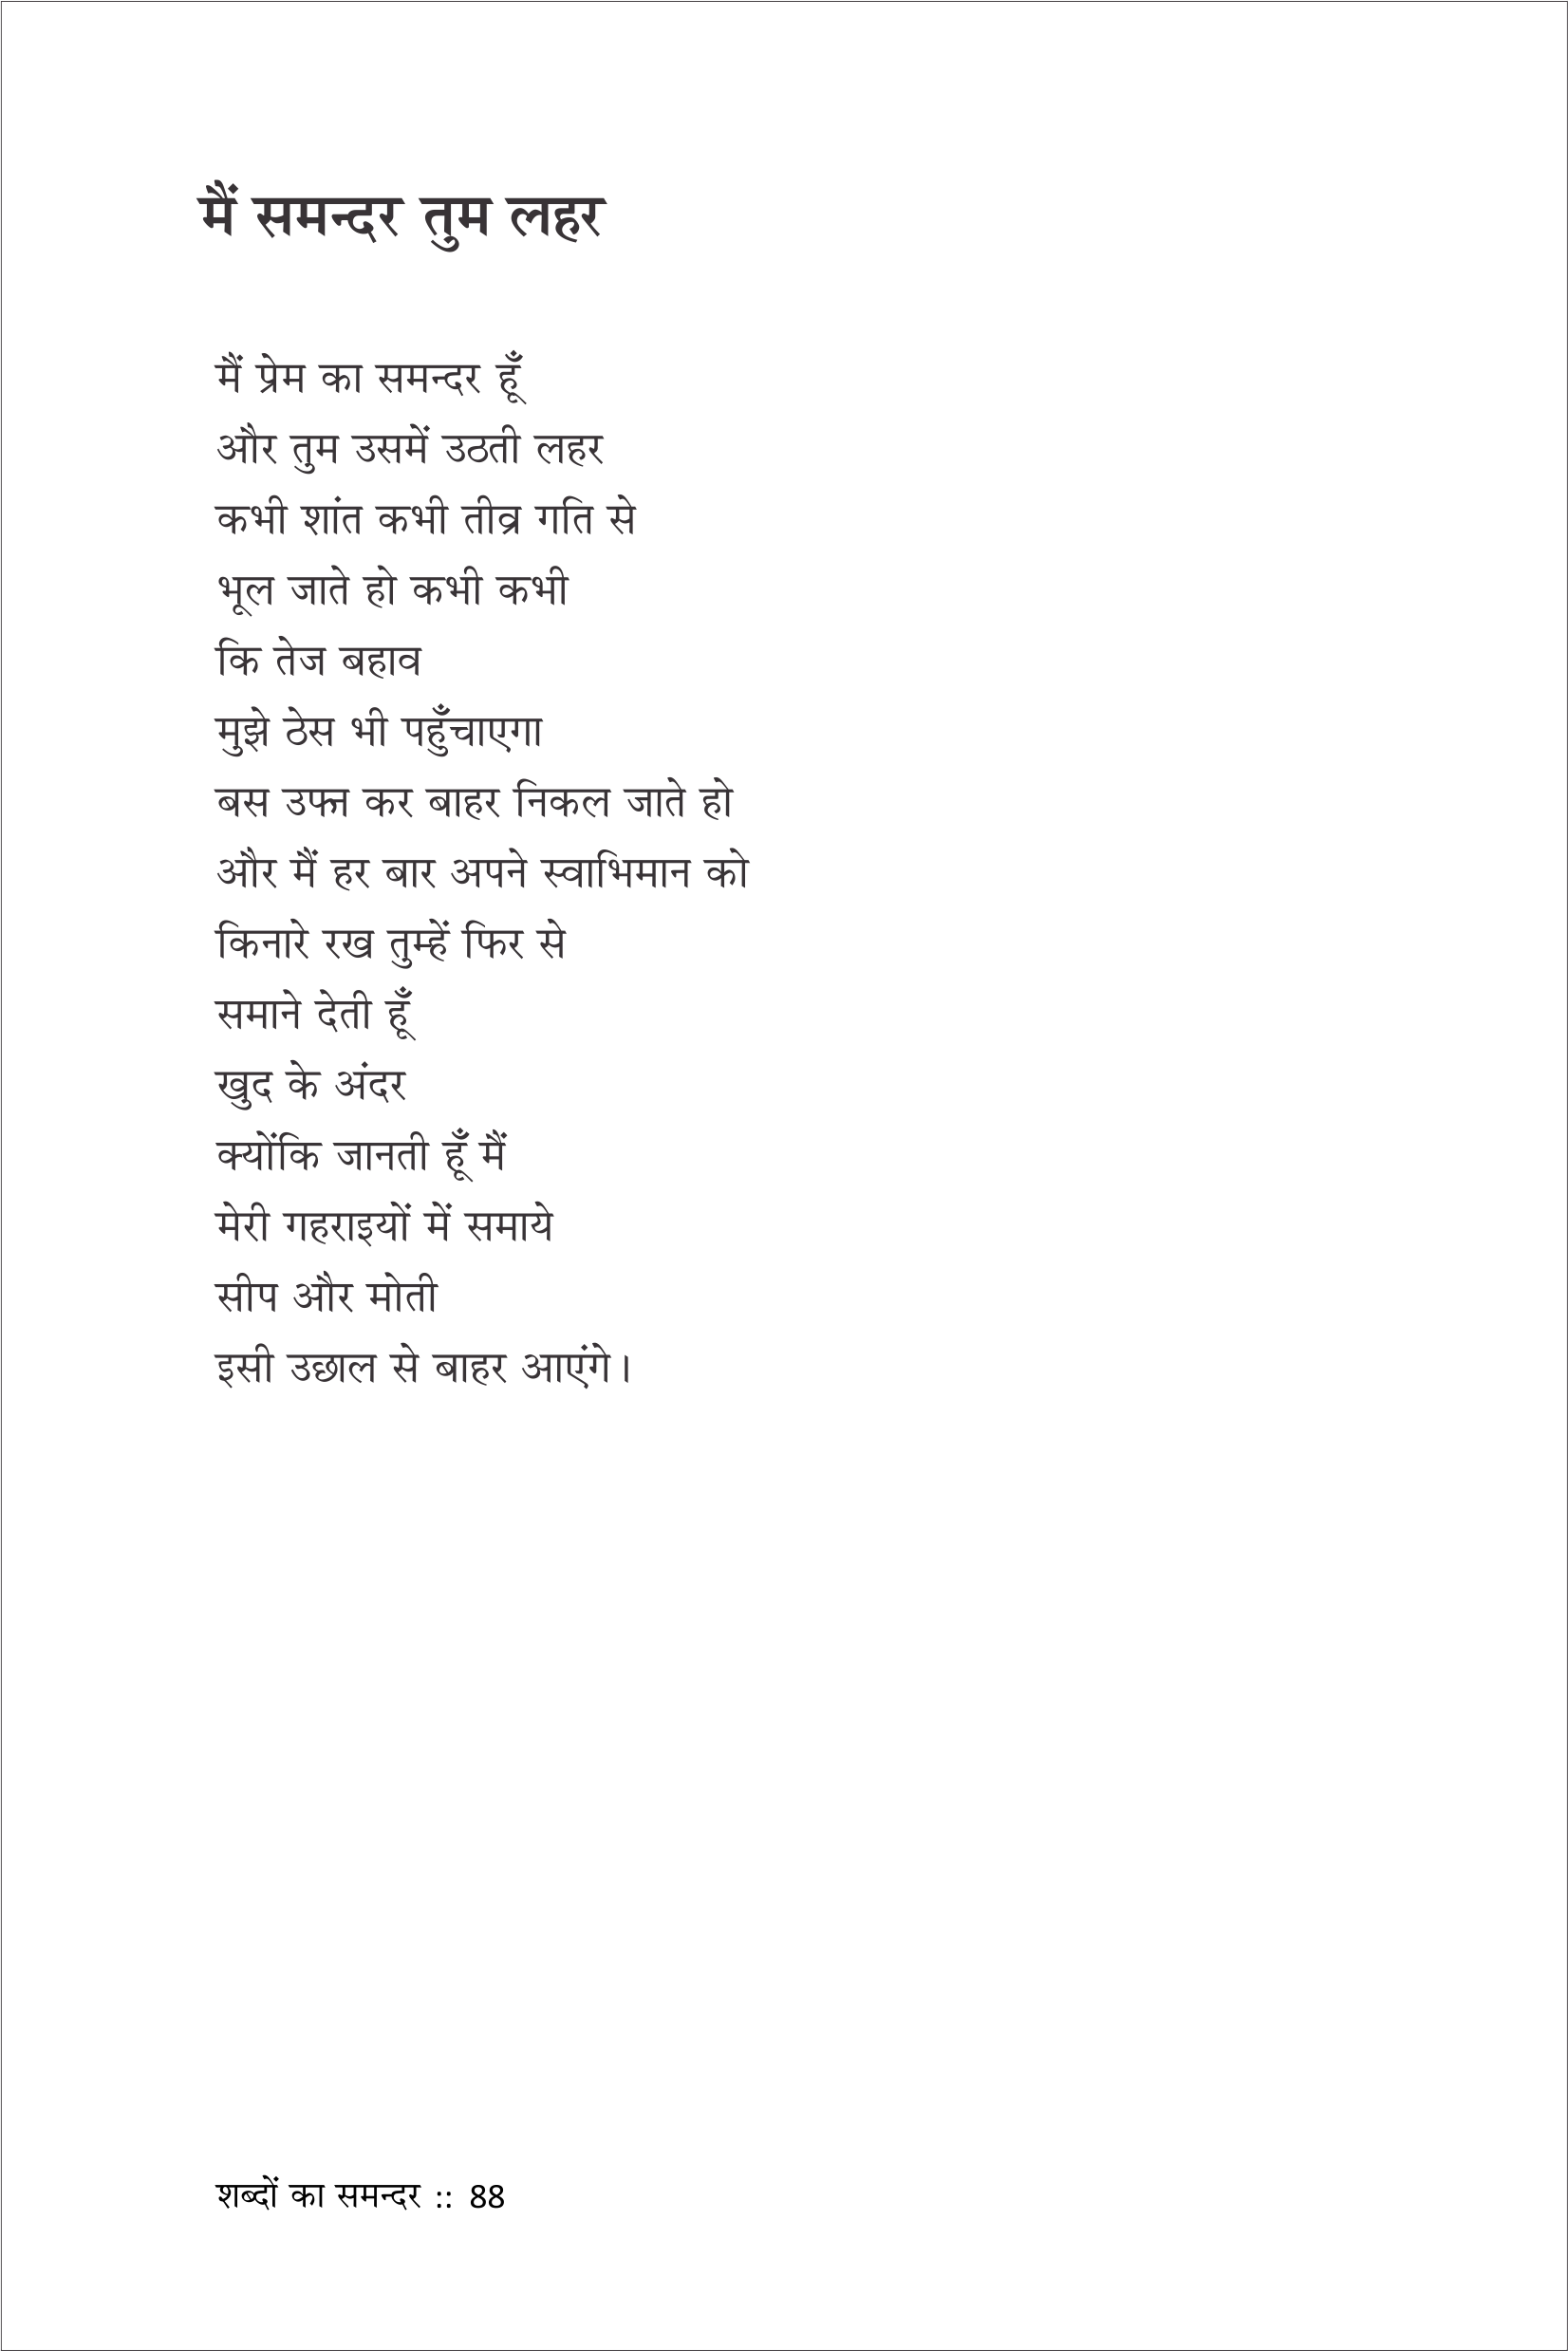 मैं समन्दर तुम लहर
मैं प्रेम का समन्दर हूँ
और तुम उसमें उठती लहर
कभी शांत कभी तीव्र गति से
भूल जाते हो कभी कभी
कि तेज बहाव
मुझे ठेस भी पहुँचाएगा
बस उफ्न कर बाहर निकल जाते हो
और मैं हर बार अपने स्वाभिमान को
किनारे रख तुम्हें फिर से
समाने देती हूँ
खुद के अंदर
क्योंकि जानती हूँ मैं
मेरी गहराइयों में समाये
सीप और मोती
इसी उछाल से बाहर आएंगे।
शब्दों का समन्दर :: 88